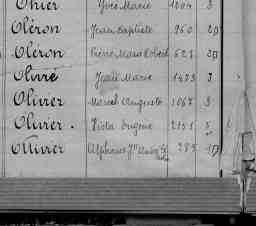 Olivier Yves Marie 1204 3
Oléron Jean Baptiste 960 2D
Oléron Pierre Marie Robert 623 2D
Olivré Jean Marie 1473 3
Olivier Marcel Auguste 1067 3
Olivier Victor Eugène 2151 5
Ollivier Alphonse 289 1D